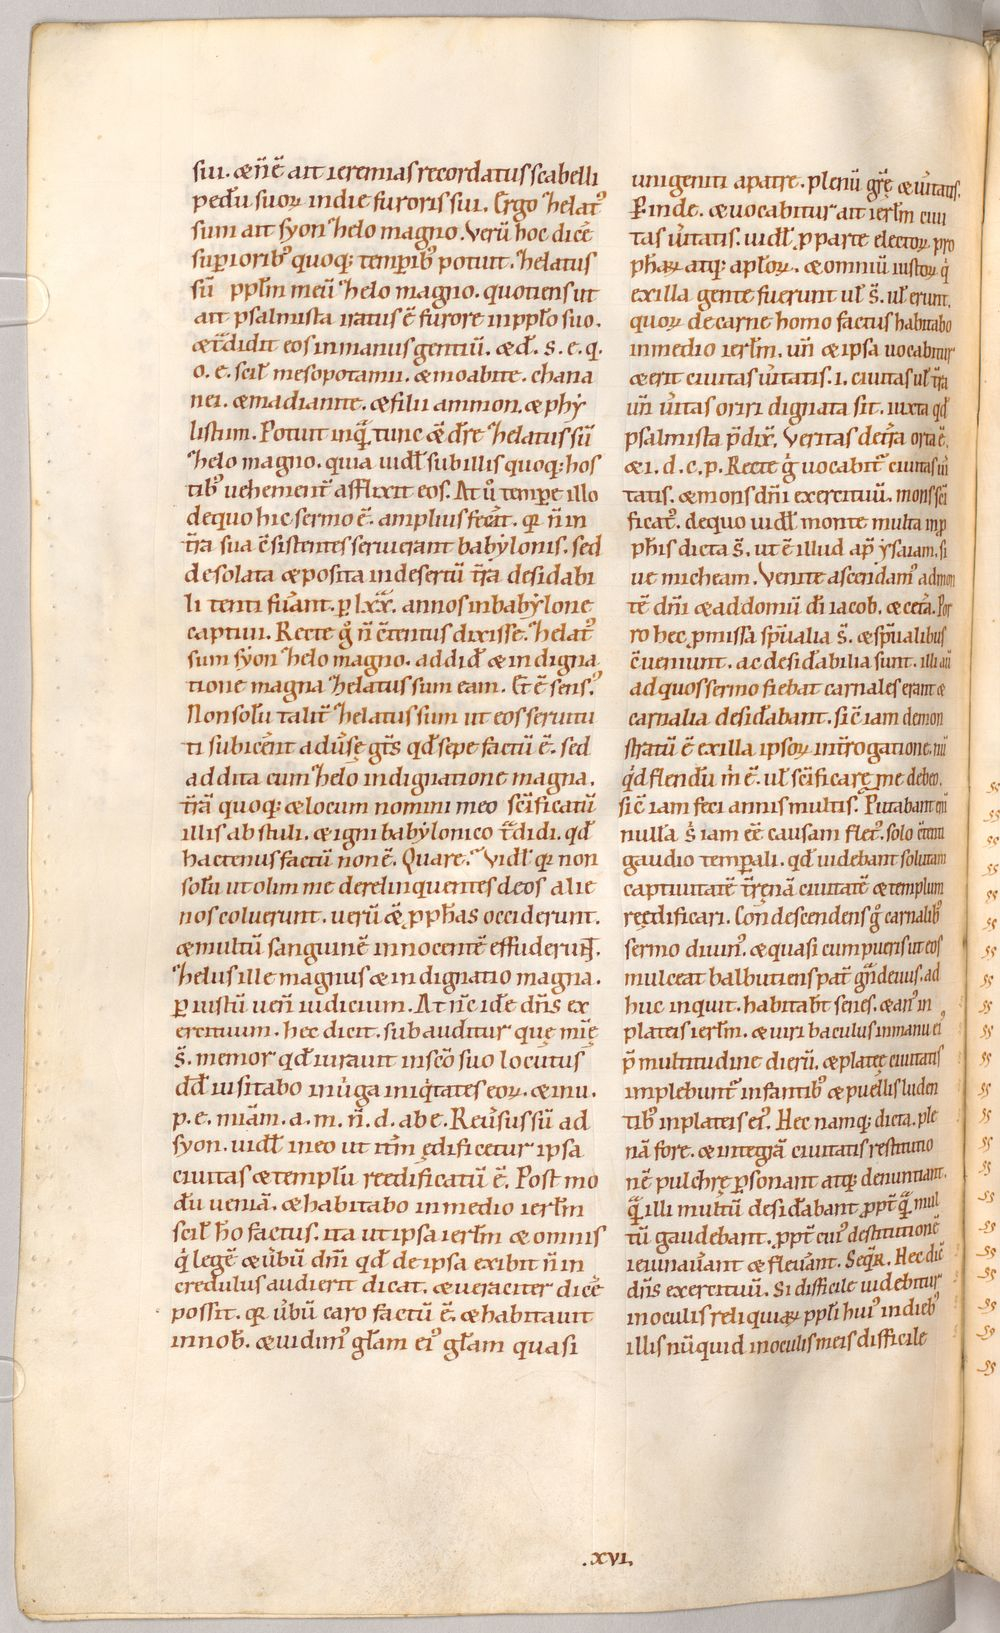 sui. & n̄ ē ait ieremias recordatus scabelli
pedū suoꝝ in die furoris sui. Ergo zhelatꝰ
sum ait syon zhelo magno. Verū hoc dicēs
superioribꝰ quoq; temporibꝰ potuit. zhelatus
sū pp̄lm meū zhelo magno. quotiens ut
ait psalmista iratus ē furore in pp̄lo suo.
& t̄didit eos in manus gentiū. & d̄. s. e. q.
o. e. scil̄ mesopotamii. & moabite. chana
nei. & madianite. & filii ammon. & phy
listiim. Potuit inq̄ tunc & d̄re zhelatus sū
zhelo magno. quia uidl̄ sub illis quoq; hos
tibꝰ uehement̄ afflixit eos. At ů tempore illo
de quo hic sermo ē. amplius fec̄it. qꝛ n̄ in
t̄ra sua ē sistentes seruierant babylonis. sed
desolata & posita in desertū t̄ra desidabi
li tenti fuāant. ꝑ lxx. annos in babylone
captiui. Recte g̊ n̄ ētentus dixisse. zhelatꝰ
sum syon zhelo magno. addid̄ & indigna
tione magna zhelatus sum eam. Et ē sensꝰ.
Non solū talit̄ zhelatus sum ut eos seruitu
ti subicēnt aduersę gt̄s qd̄ sepe factū ē. sed
addita cum zhelo indignatione magna.
t̄rā quoq; & locum nomini meo sc̄ificatū
illis abstuli. & igni babylonico t̄didi. qd̄
hactenus factū non ē. Quare. Vidl̄ qꝛ non
solū ut olim me derelinquentes deos alie
nos coluerunt. uerū & ꝓphas occiderunt.
& multū sanguinē innocentē effuderunt.
zhelus ille magnus & indignatio magna.
ꝑ iustū uen̄ iudicium. At n̄c idē dn̄s ex
ercituum. hec dicit. subauditur quę mīę
s̄. memor qd̄ iurauit in sc̄o suo locutus
dd̄ uisitabo in uirga iniq̇tates eoꝝ. & in u.
p. e. miā̄m. a. m. n̄. d. ab e. Reuersus sū ad
syon. uidl̄ in eo ut iterum ędificetur ipsa
ciuitas & templū reedificatū ē. Post mo
dū ueniā. & habitabo in medio ierl̄m
scil̄ hō factus. ita ut ipsa ierl̄m & omnis
q̇ legē & ůbū dn̄i qd̄ de ipsa exibit n̄ in
credulus audierit dicat. & ueraciter dicēe
possit. qꝛ ůbū caro factū ē. & habitauit
in nob̄. & uidimꝰ gl̄am eiꝰ gl̄am quasi
unigeniti a patre. plenū grę̄ & ůitatis.
Proinde. & uocabitur ait ierl̄m ciui
tas ůitatis. uidl̄ ꝓ parte electoꝝ. pro
phaꝝ atq; apl̄oꝝ. & omniū iustoꝝ q̇
ex illa gente fuerunt ul̄ s̄. ul̄ erunt.
quoꝝ de carne homo factus habitabo
in medio ierl̄m. un̄ & ipsa uocabitur
& erit ciuitas ůitatis. i. ciuitas ul̄ t̄ra
un̄ ůitas oriri dignata sit. iuxta qd̄
psalmista p̄dix̄. Veritas de t̄ra orta ē.
& i. d. c. p. Recte g̊ uocabit̄ ciuitas ůi
tatis. & mons dn̄i exercituū. mons sc̄i
ficatꝰ. de quo uidl̄ monte multa in ꝓ
ph̄is dicta s̄. ut ē illud ap̄ ysaiam. si
ue micheam. Venite ascendamꝰ ad mon
tē dn̄i & ad domū dī iacob. & cet̄a. Por
ro hec ꝓmissa spūalia s̄. & spūalibus
ēueniunt. ac desid̄abilia sunt. illi aū
ad quos sermo fiebat carnales erant &
carnalia desid̄abant. sic̄ iam demon
stratū ē ex illa ipsoꝝ int̄rogatione. nū
qd̄ flendū m̄ ē. ul̄ sc̄ificare me debeo.
sic̄ iam feci annis multis. Putabant enī
nulla s̄ iam ēe causam fletꝰ. solo ētenti
gaudio temporali. qd̄ uidebant solutam
captiuitatē t̄renā ciuitatē & templum
ręędificari. Con descendens g̊ carnalibꝰ
sermo diuinꝰ. & quasi cum pueris ut eos
mulceat balbutiens pat̄ gn̄deuus. ad
huc inquit. habitabt̄ senes. & anꝰ in
plateis ierl̄m. & uiri baculus in manu eiꝰ
p̄ multitudine dierū. & platęę ciuitatis
implebunt̄ infantibꝰ & puellis luden
tibꝰ in plateis eiꝰ. Hec namq; dicta. ple
nā fore. & integrā ciuitatis restitutio
nē pulchrę ꝑsonant atq; denuntiant.
q̄ illi multū desid̄abant ꝓpt̄ q̄ mul
tū gaudebant. ꝓpt̄ cuiꝰ destitutionē
ieiunaůant & fleůant. Seqꝛ. Hec dic̄
dn̄s exercituū. Si difficile uidebitur
in oculis reliquiaꝝ ppl̄i huiꝰ in diebꝰ
illis nūquid in oculis meis difficile
.xvi.